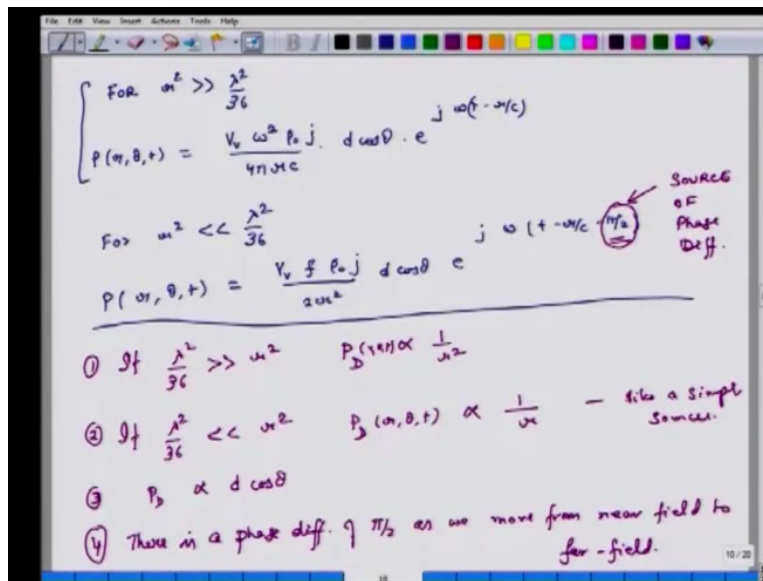 File Edit View Insert Actions Tools Help
FOR r² >> λ²/36
P(r, θ, t) = V_v ω² ρ₀ j / 4πrc . d cosθ . e^{jω(t - r/c)}
SOURCE OF Phase Diff.
For r² << λ²/36
P(r, θ, t) = V_v f ρ₀ j / 2r² d cosθ e^{jω(t - r/c - π/2)}
① If λ²/36 >> r² P_D(r,θ,t) ∝ 1/r²
② If λ²/36 << r² P_D(r, θ, t) ∝ 1/r — like a simpl source.
③ P_D ∝ d cosθ
④ There is a phase diff. of π/2 as we move from near field to
far-field.
10 / 20
10